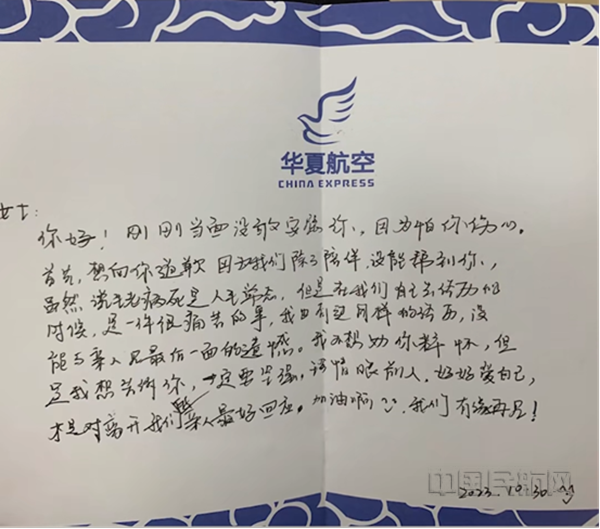 华夏航空
CHINA EXPRESS
女士:
你好!刚刚当面没敢安慰你,因为怕你伤心。
首先,想向你道歉因为我们除了陪伴,没能帮到你,
虽然说生老病死是人生常态,但是在我们自己去经历的
时候,是一件很痛苦的事,我也有过同样的经历,没
能与亲人见最后一面的遗憾。我不想劝你释怀,但
是我想告诉你,一定要坚强,请惜眼前人,好好爱自己,
才是对离开我们的亲人最好回应。加油啊,我们有缘再见!
2023.10.30
中国民航网